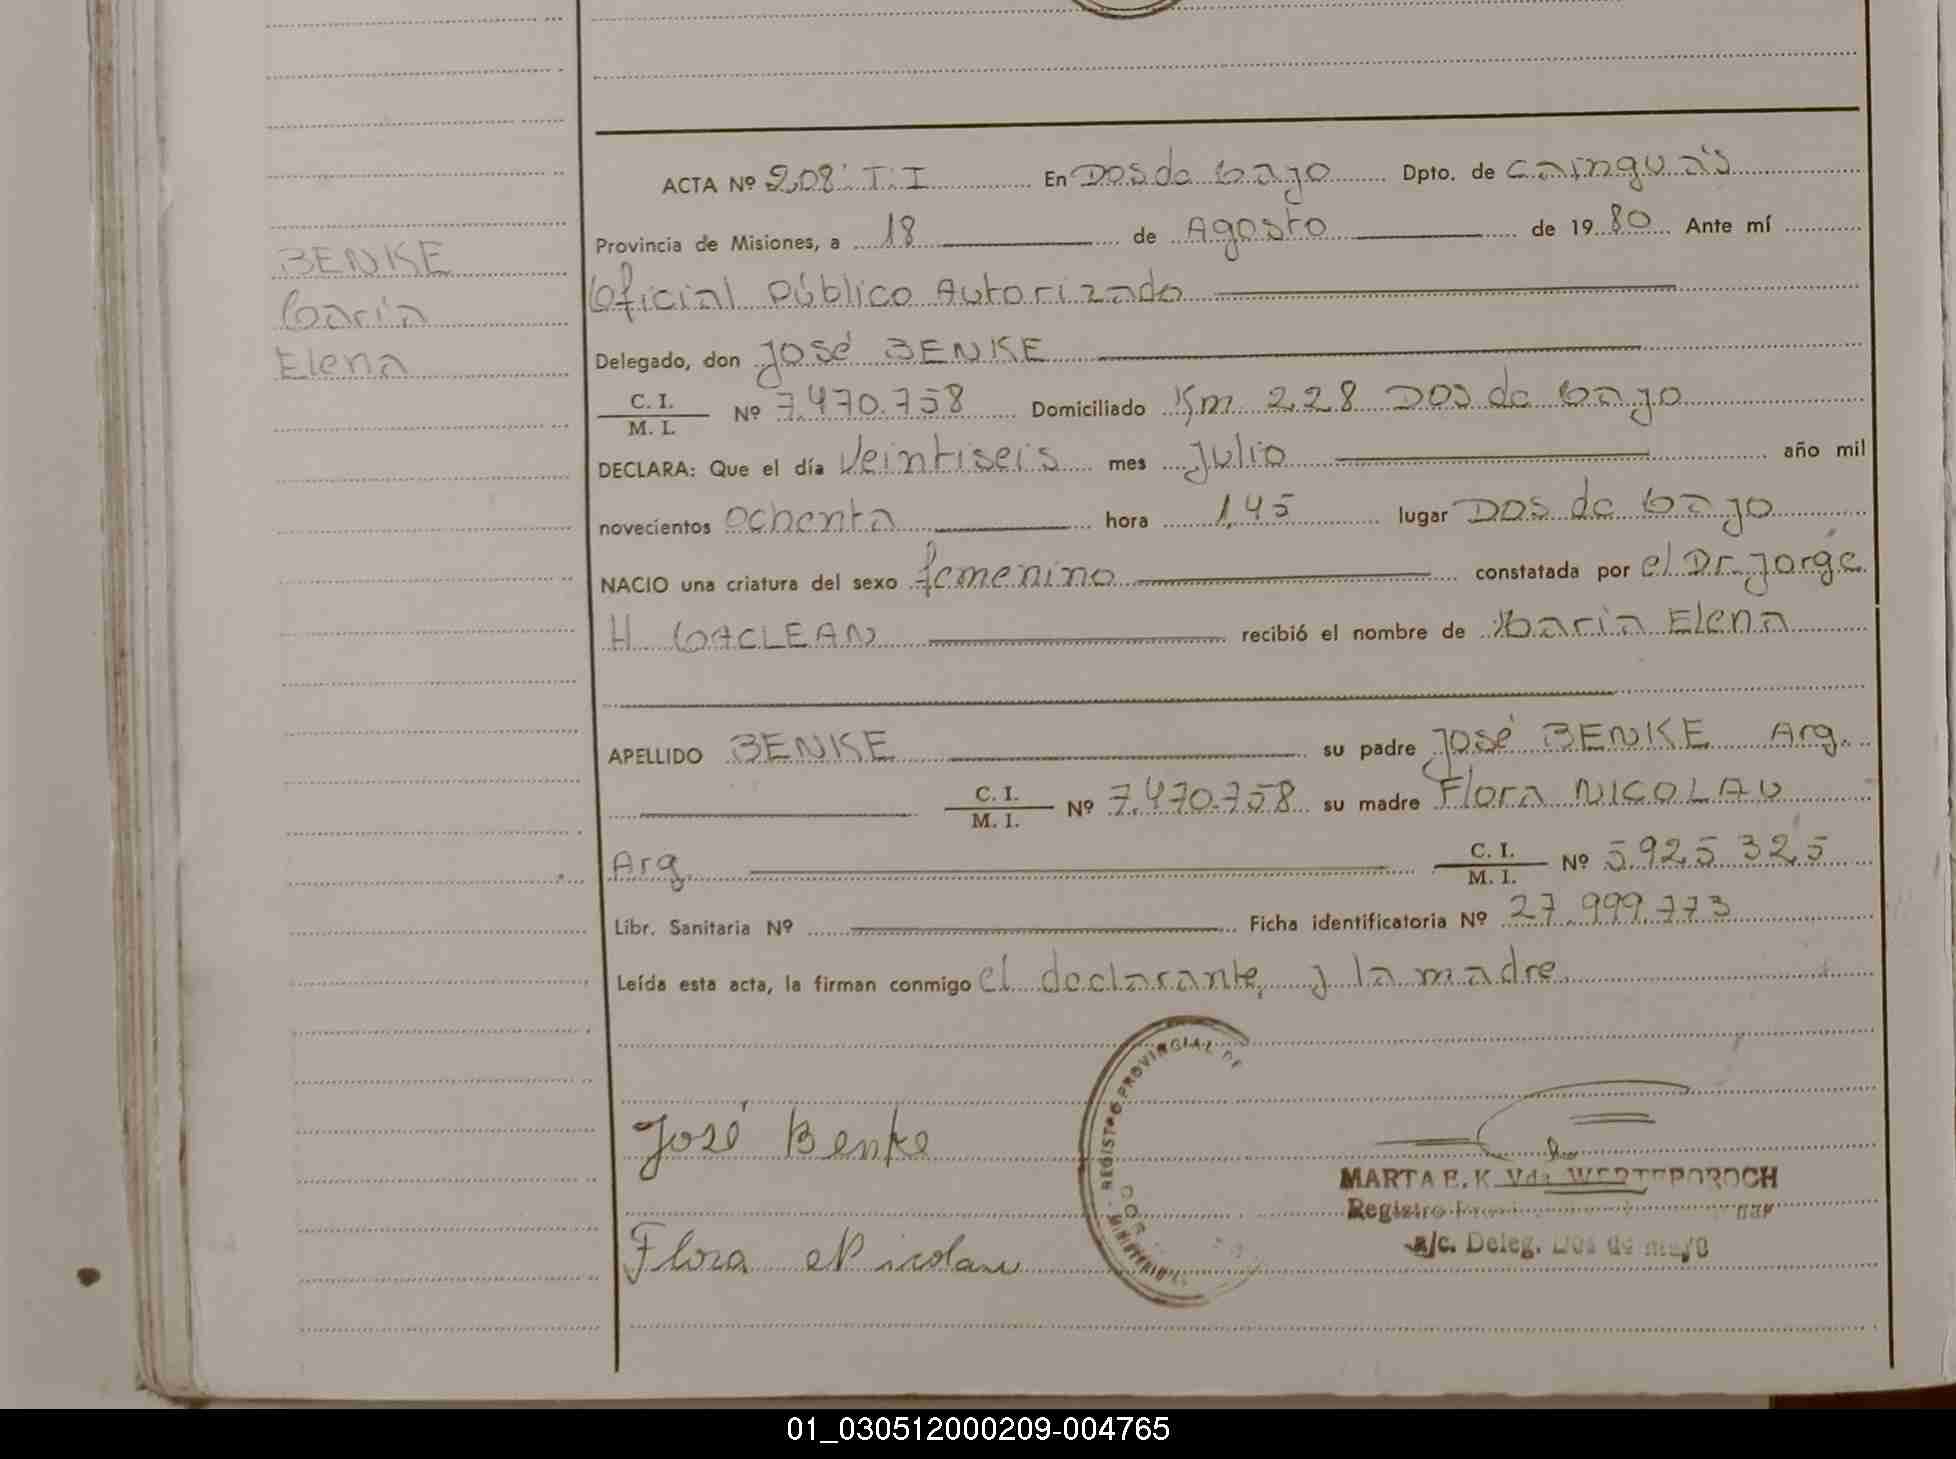 ACTA Nº 208 T. I En Dos de Mayo Dpto. de Cainguás
Provincia de Misiones, a 18 de Agosto de 1980 Ante mí
Oficial Público Autorizado
Delegado, don José BENKE
C. I. / M. I. Nº 7.470.758 Domiciliado Km 228 Dos de Mayo
DECLARA: Que el día Veintiseis mes Julio año mil
novecientos Ochenta hora 1,45 lugar Dos de Mayo
NACIO una criatura del sexo femenino constatada por el Dr. Jorge
H. MACLEAN recibió el nombre de María Elena
APELLIDO BENKE su padre José BENKE Arg.
C. I. / M. I. Nº 7.470.758 su madre Flora NICOLAU
Arg. C. I. / M. I. Nº 5925325
Libr. Sanitaria Nº Ficha identificatoria Nº 27.999.773
Leída esta acta, la firman conmigo el declarante, y la madre
BENKE
María
Elena
José Benke
Flora Nicolau
REGISTRO PROVINCIAL DE
MARTA E. K. Vda. WERTEPOROCH
Registro
a/c. Deleg. Dos de mayo
01_030512000209-004765